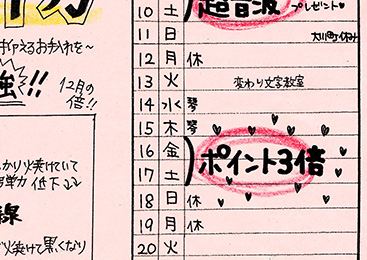 を抑えるお手入れを〜
強!!
12月の
倍!!
かり焼けていて
弾力 低下
線
焼けて黒くなり
10 土 超音波 プレゼント♥
11 日 大川町休み
12 月 休
13 火 変わり文字教室
14 水 琴
15 木 琴
16 金
ポイント3倍
17 土
18 日 休
19 月 休
20 火